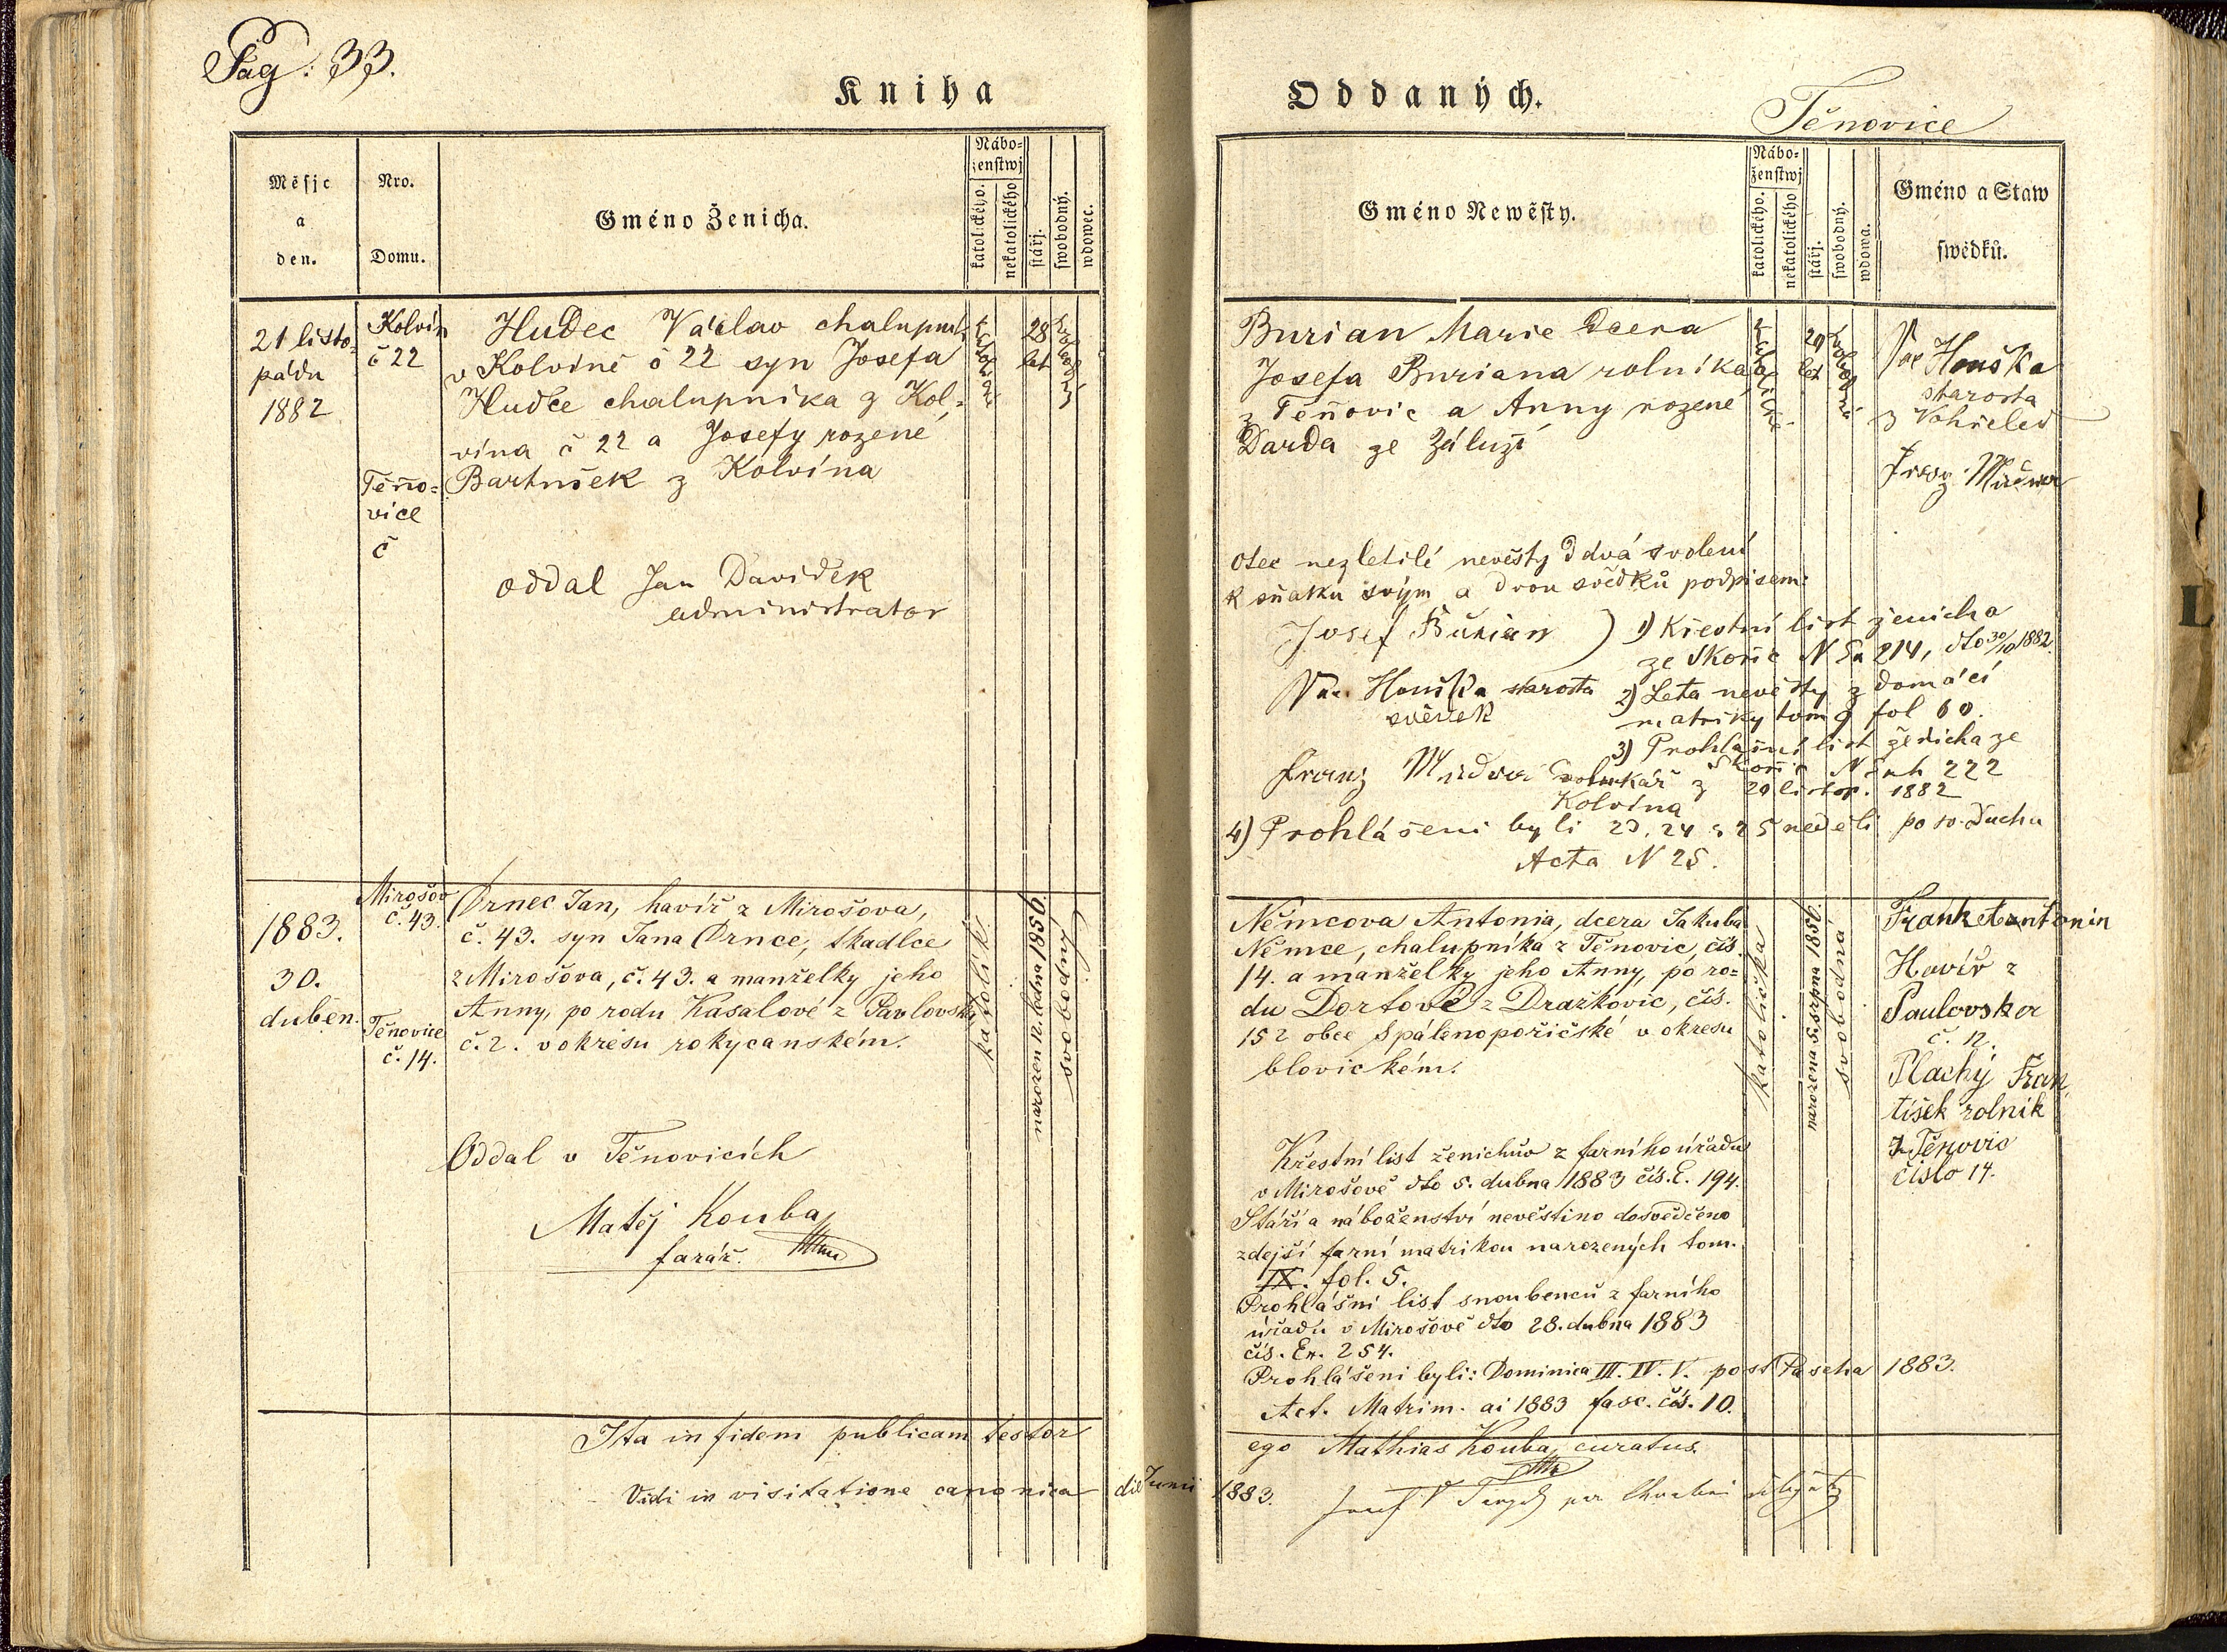 Pag: 33.
Kniha
Měsjc
a
den.
Nro.
Domu.
Gméno Ženicha.
Nábo=
ženstwj
katolického.
nekatolického
stářj.
swobodný.
wdowec.
21 listo=
pádu
1882
Kolvín
č 22
Těňo=
vice
č
Hudec Václav chalupník
v Kolvíně č 22 syn Josefa
Hudce chalupníka z Kol=
vína č 22 a Josefy rozené
Bartůšek z Kolvína
28
let
oddal Jan Davídek
administrator
1883.
30.
duben.
Mirošov
č. 43.
Těnovice
č. 14.
Drnec Jan, havíř z Mirošova,
č. 43. syn Jana Drnce, tkadlce
z Mirošova, č. 43. a manželky jeho
Anny, po rodu Kasalové z Pavlovska
č. 2. v okresu rokycanském.
katolík.
narozen 12. ledna 1856.
svobodný
Oddal v Těnovicích
Matěj Kouba,
farář.
Ita in fidem publicam testor
Vidi in visitatione canonica die Junii 1883.
Oddaných.
Těnovice
Gméno Newěsty.
Nábo=
ženstwj
katolického.
nekatolického
stářj.
swobodný.
wdowa.
Gméno a Staw
swědků.
Burian Marie dcera
Josefa Buriana rolníka
z Těňovic a Anny rozené
Darda ze Záluží
20
let
Vac Houška
starosta
z Vohřeled
Franz
otec nezletilé nevěsty dává svolení
k sňatku svým a dvou svědků podpisem:
Josef Burian
Vac. Houška starosta
svědek
Franz
Kolvína
1) Křestní list ženicha
ze Skořic N Ex 214, dto 30/10 1882.
2) Leta nevěsty z domácí
matriky tom 9 fol 60.
3) Prohlašní list ženicha ze
Skořic N Exh 222
20 listop. 1882
4) Prohlášeni byli 23, 24 a 25 neděli po sv. Duchu
Acta N 25.
Němcova Antonia, dcera Jakuba
Němce, chalupníka z Těnovic, čís.
14. a manželky jeho Anny, po ro=
du Dortové z Dražkovic, čís.
152 obce Spálenopořičské v okresu
blovickém.
katolička
narozena 5. srpna 1856.
svobodná
Antonin
Havíř z
Paulovska
č. 12.
Plachý Fran
tišek rolník
z Těnovic
číslo 14.
Křestní list ženichův z farního úřadu
v Mirošově dto 5. dubna 1883 čís. E. 194.
Stáří a náboženství nevěstino dosvědčeno
zdejší farní matrikou narozených tom.
IX. fol. 5.
Prohlášní list snoubenců z farního
úřadu v Mirošově dto 28. dubna 1883
čís. Ex. 254.
Prohlášeni byli: Dominica III. IV. V. post Pascha 1883.
Act. Matrim. ai 1883 fasc. čís. 10.
ego Mathias Kouba, curatus.